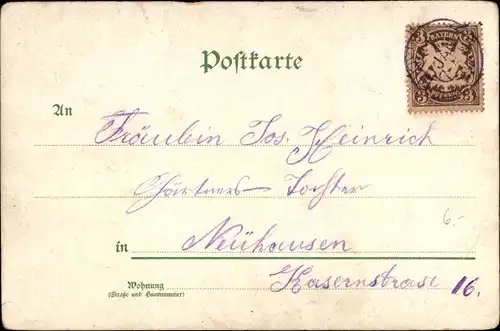 Postkarte
BAYERN
3 PFENNIG 3
An
Fräulein Jos. Heinrich
Gärtners- Tochter
6.-
in Neuhausen
Wohnung
(Straße und Hausnummer)
Kasernstrase 16.